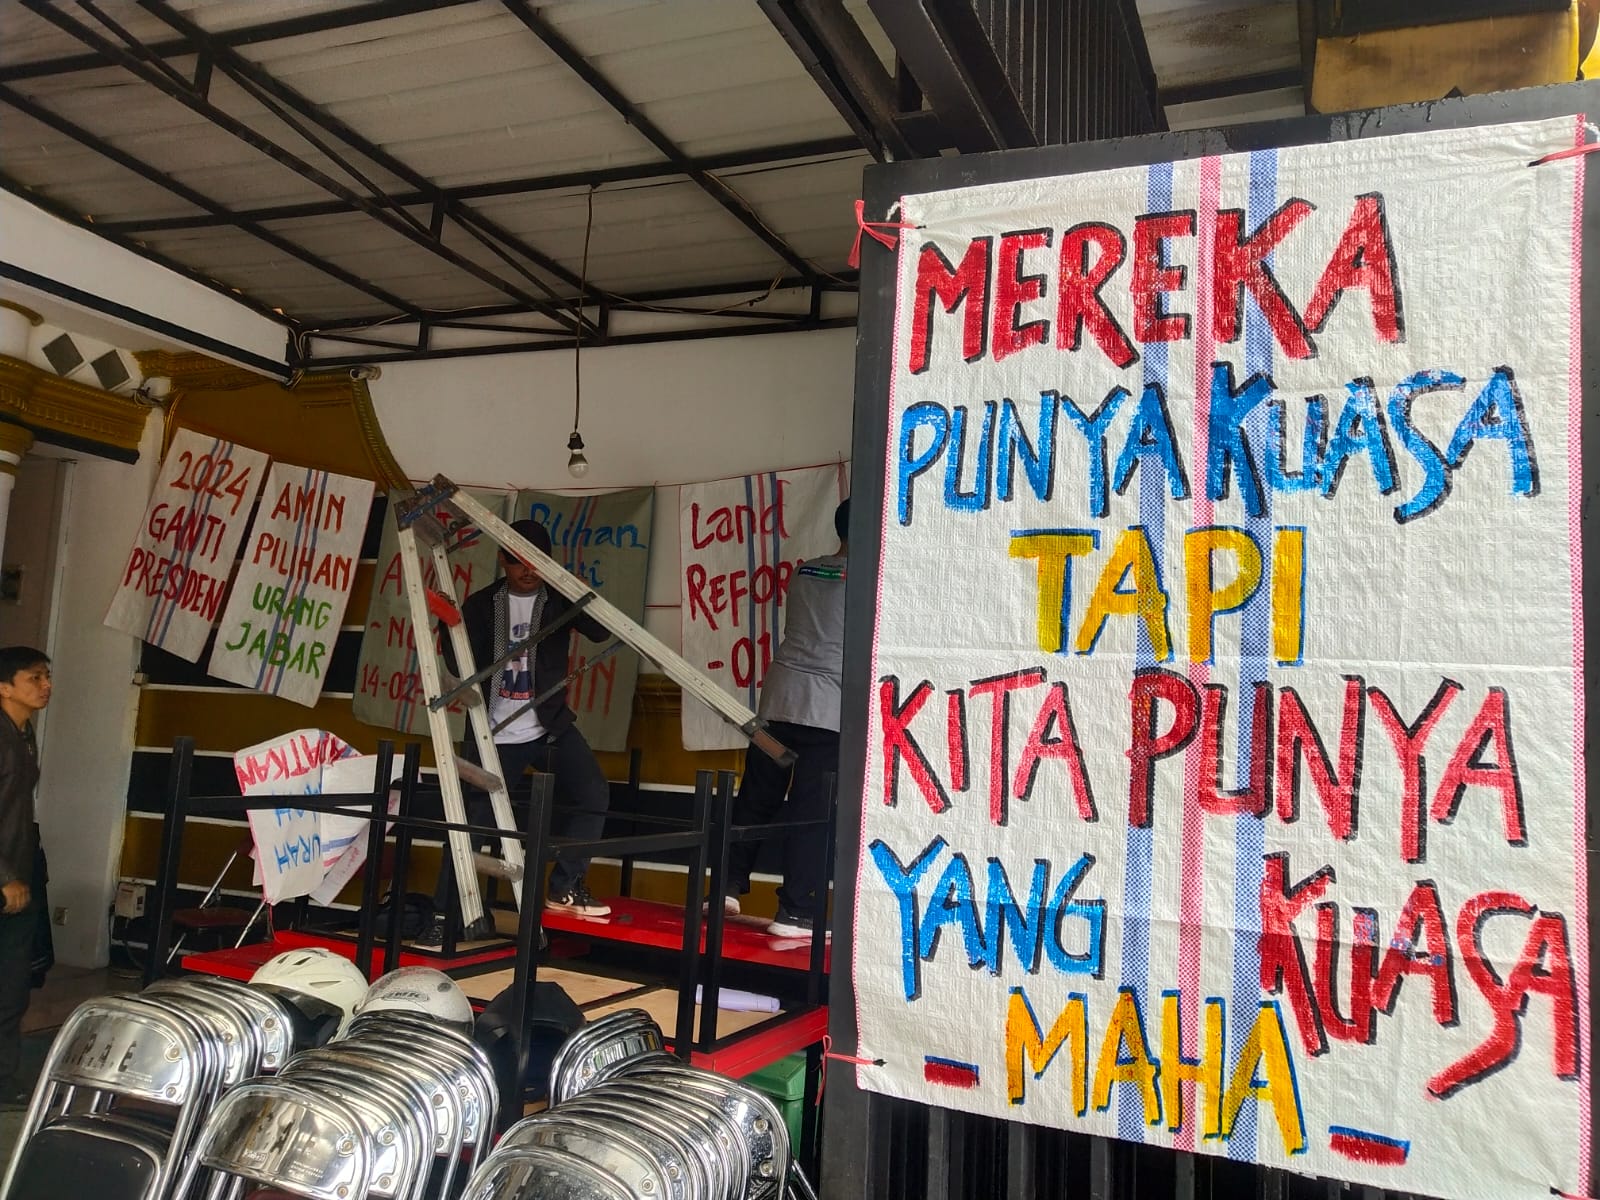 MEREKA
PUNYA KUASA
TAPI
KITA PUNYA
YANG KUASA
- MAHA -
2024
GANTI
PRESIDEN
AMIN
PILIHAN
URANG
JABAR
14-02-
Pilihan
Land
REFOR
-01